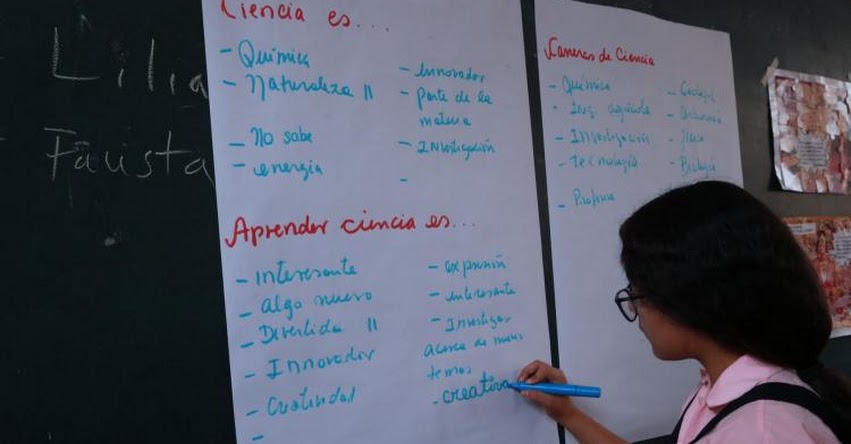 Lilia
Fausta
Ciencia es...
- Química
- Naturaleza 11
- No sabe
- energía
- Innovador
- Parte de la
materia
- Investigación
-
Aprender ciencia es...
- interesante
- algo nuevo
- Divertida 11
- Innovador
-
- expresión
- interesante
- Investigar
acerca de nuevos
temas
- creativa
Carreras de Ciencia
- Química
- Ing. agrícola
- Investigación
- Tecnología
- Profesora
- Geología
- Física
- Biología